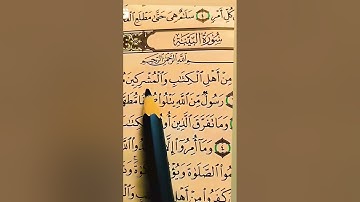 كُلِّ أَمْرٍ ٤ سَلَٰمٌ هِىَ حَتَّىٰ مَطْلَعِ
سُورَةُ البَيِّنَةِ
بِسْمِ ٱللَّهِ ٱلرَّحْمَٰنِ ٱلرَّحِيمِ
مِنْ أَهْلِ ٱلْكِتَٰبِ وَٱلْمُشْرِكِينَ
رَسُولٌ مِّنَ ٱللَّهِ يَتْلُوا۟
وَمَا تَفَرَّقَ ٱلَّذِينَ
٤ وَمَآ أُمِرُوٓا۟ إِلَّا
ٱلصَّلَوٰةَ
كَفَرُوا۟ مِنْ أَهْلِ ٱلْكِتَٰبِ